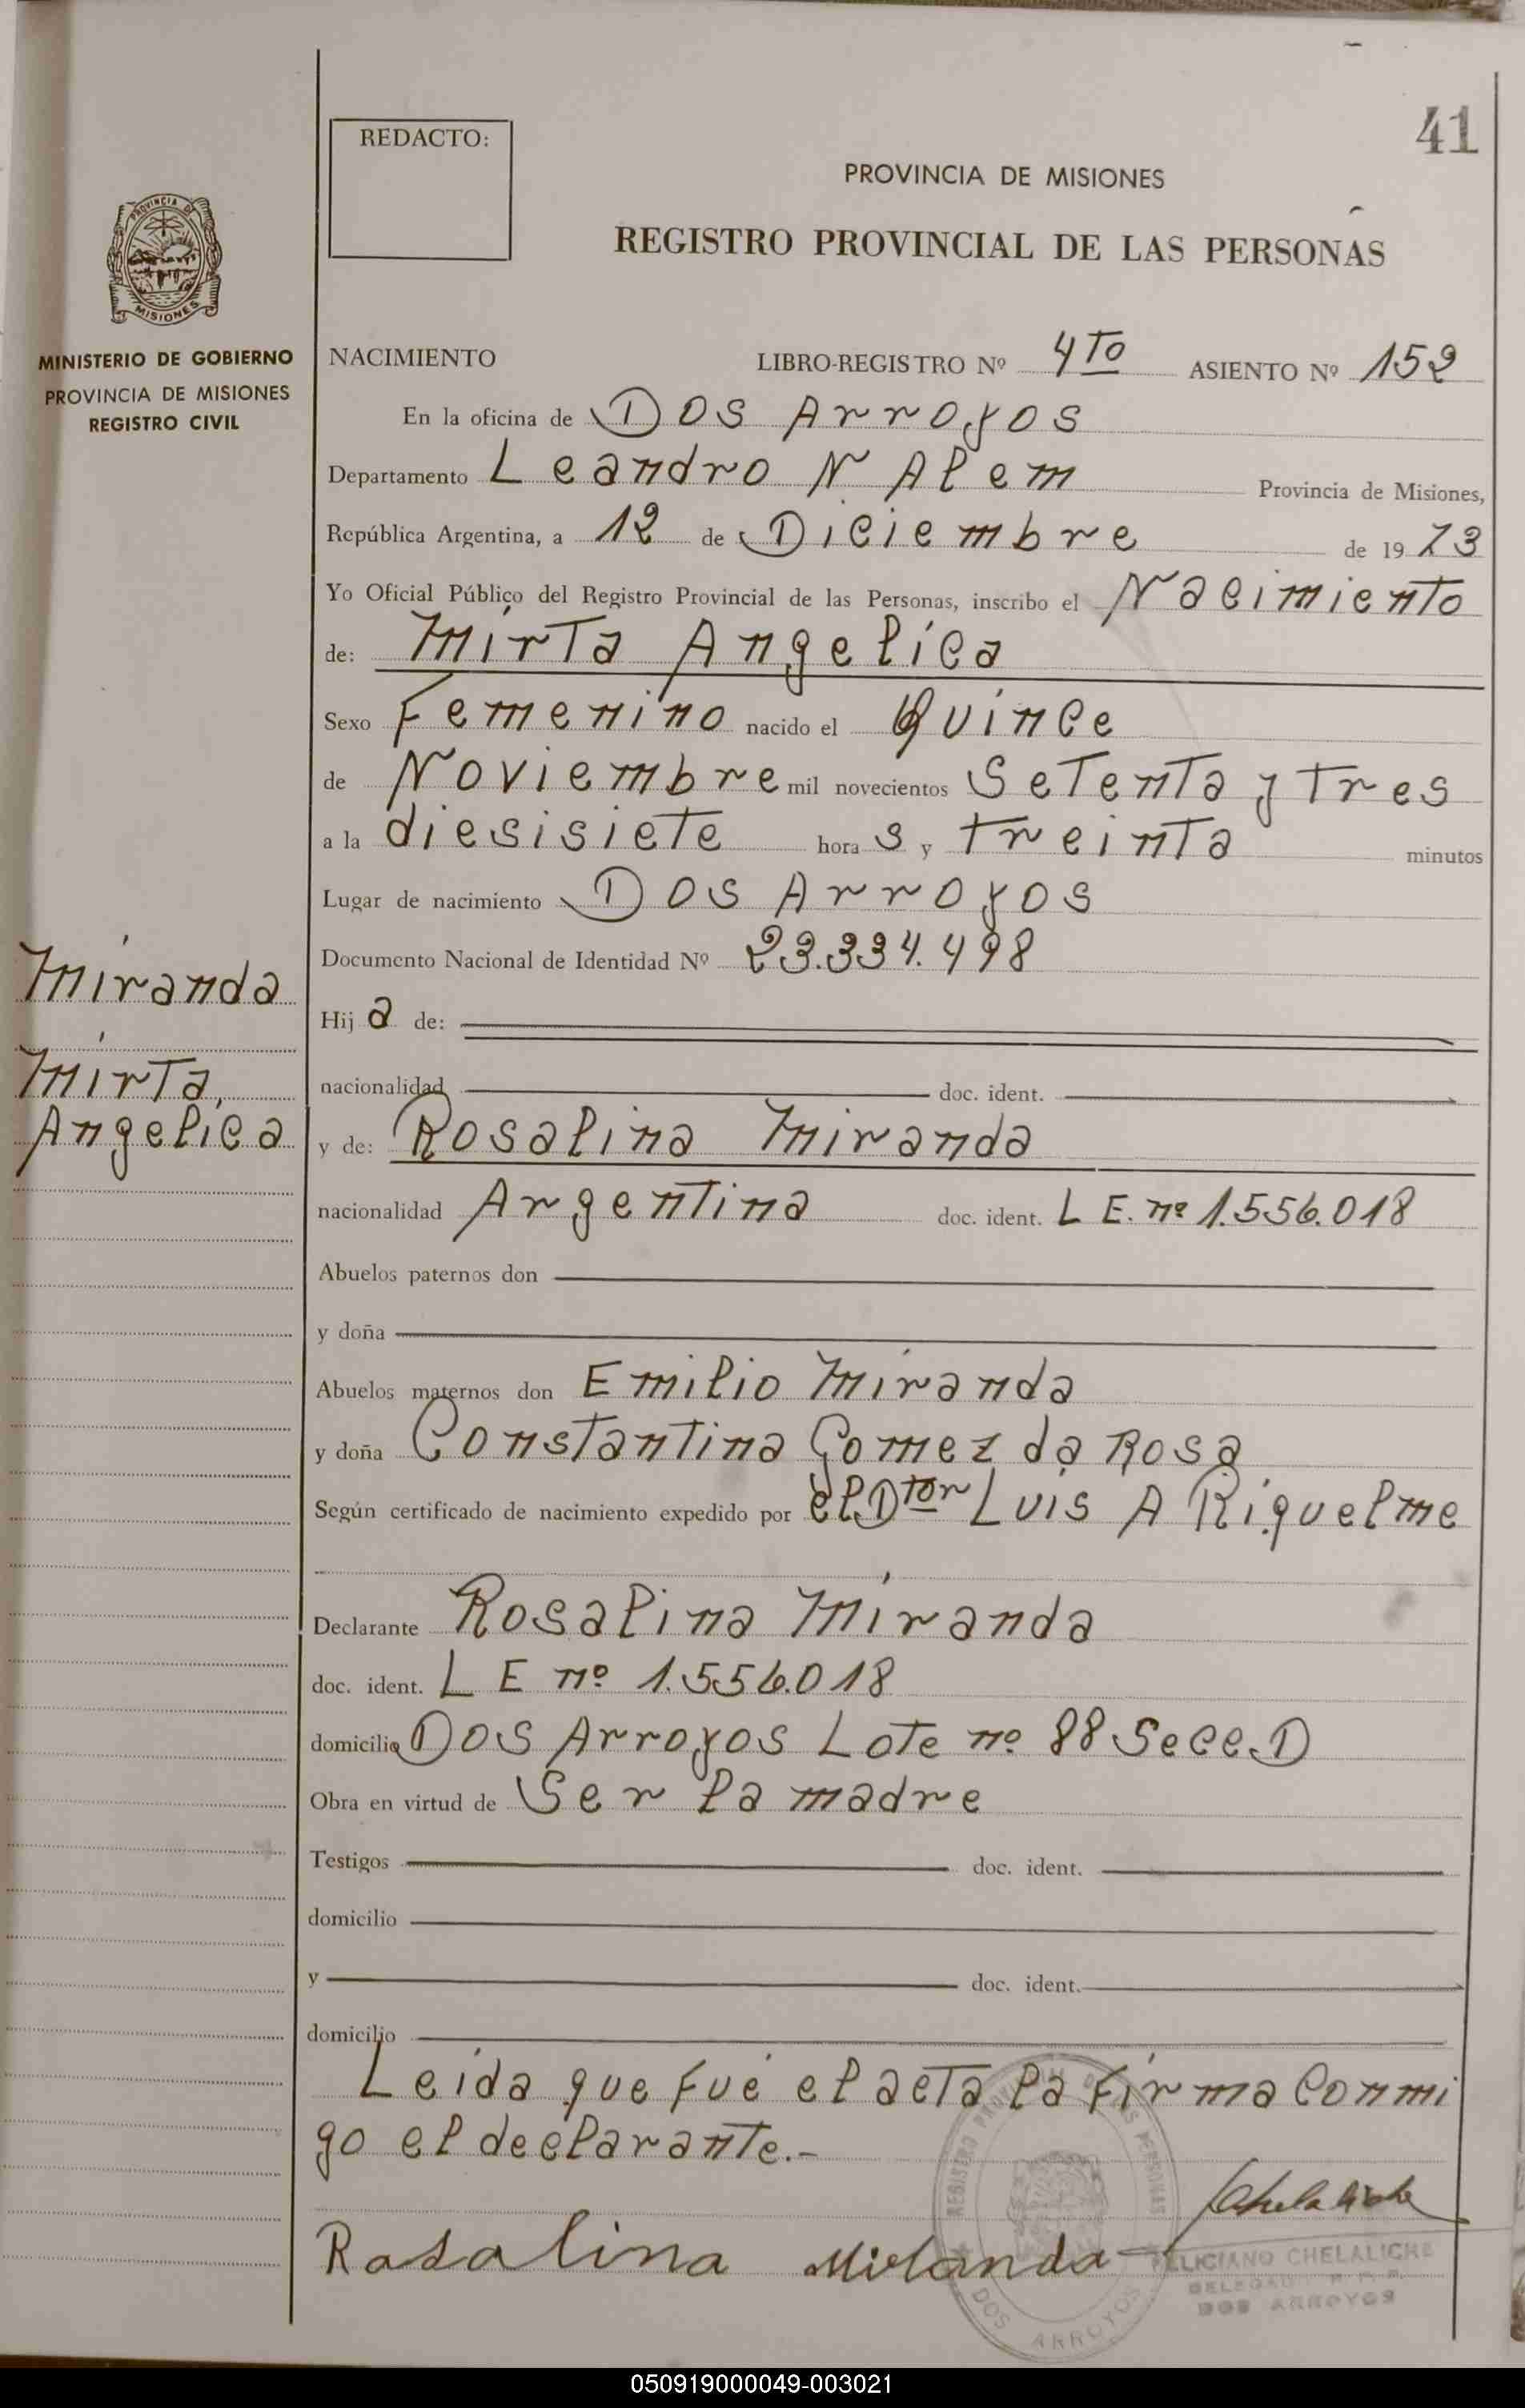 41
REDACTO:
PROVINCIA DE MISIONES
REGISTRO PROVINCIAL DE LAS PERSONAS
PROVINCIA DE
MISIONES
MINISTERIO DE GOBIERNO
PROVINCIA DE MISIONES
REGISTRO CIVIL
NACIMIENTO LIBRO-REGISTRO Nº 4TO ASIENTO Nº 152
En la oficina de Dos Arroyos
Departamento Leandro N. Alem Provincia de Misiones,
República Argentina, a 12 de Diciembre de 19 73
Yo Oficial Público del Registro Provincial de las Personas, inscribo el Nacimiento
de: Mirta Angelica
Sexo Femenino nacido el Quince
de Noviembre mil novecientos Setenta y Tres
a la diesisiete hora s y treinta minutos
Lugar de nacimiento Dos Arroyos
Documento Nacional de Identidad Nº 23.334.498
Miranda
Mirta,
Angelica
Hij a de:
nacionalidad doc. ident.
y de: Rosalina Miranda
nacionalidad Argentina doc. ident. L E. nº 1.556.018
Abuelos paternos don
y doña
Abuelos maternos don Emilio Miranda
y doña Constantina Gomez da Rosa
Según certificado de nacimiento expedido por el Dtor Luis A Riquelme
Declarante Rosalina Miranda
doc. ident. L E nº 1.556.018
domicilio Dos Arroyos Lote nº 88 Secc. D
Obra en virtud de Ser la madre
Testigos doc. ident.
domicilio
y doc. ident.
domicilio
Leida que fué el acta la firma Conmi
go el declarante.-
Rosalina Miranda
Chelaliche
REGISTRO PROVINCIAL DE LAS PERSONAS
DOS ARROYOS
FELICIANO CHELALICHE
DELEGADO R. P. P.
DOS ARROYOS
050919000049-003021